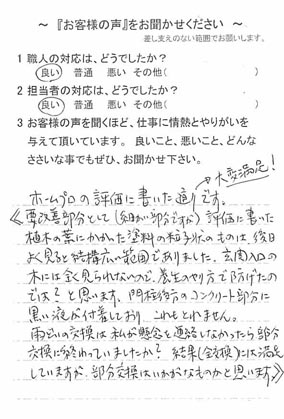 ～『お客様の声』をお聞かせください ～
差し支えのない範囲でお願いします。
1 職人の対応は、どうでしたか?
良い 普通 悪い その他( )
2 担当者の対応は、どうでしたか?
良い 普通 悪い その他( )
3 お客様の声を聞くほど、仕事に情熱とやりがいを
与えて頂いています。 良いこと、悪いこと、どんな
ささいな事でもぜひ、お聞かせ下さい。
大変満足!
ホームプロの評価に書いた通りです。
《要改善部分として(細かい部分ですが)評価に書いた
植木の葉にかかった塗料の粒子状のものは、後日
よく見ると結構広い範囲でありました。玄関入口の
木には全く見られないので、養生のやり方で防げたの
では?と思います。門柱後方のコンクリート部分に
黒い液が付着しており これもとれません。
雨どいの交換は私が懸念を連絡しなかったら部分
交換に終わっていましたか? 結果(全交換)には満足
していますが、部分交換はいかがなものかと思います》